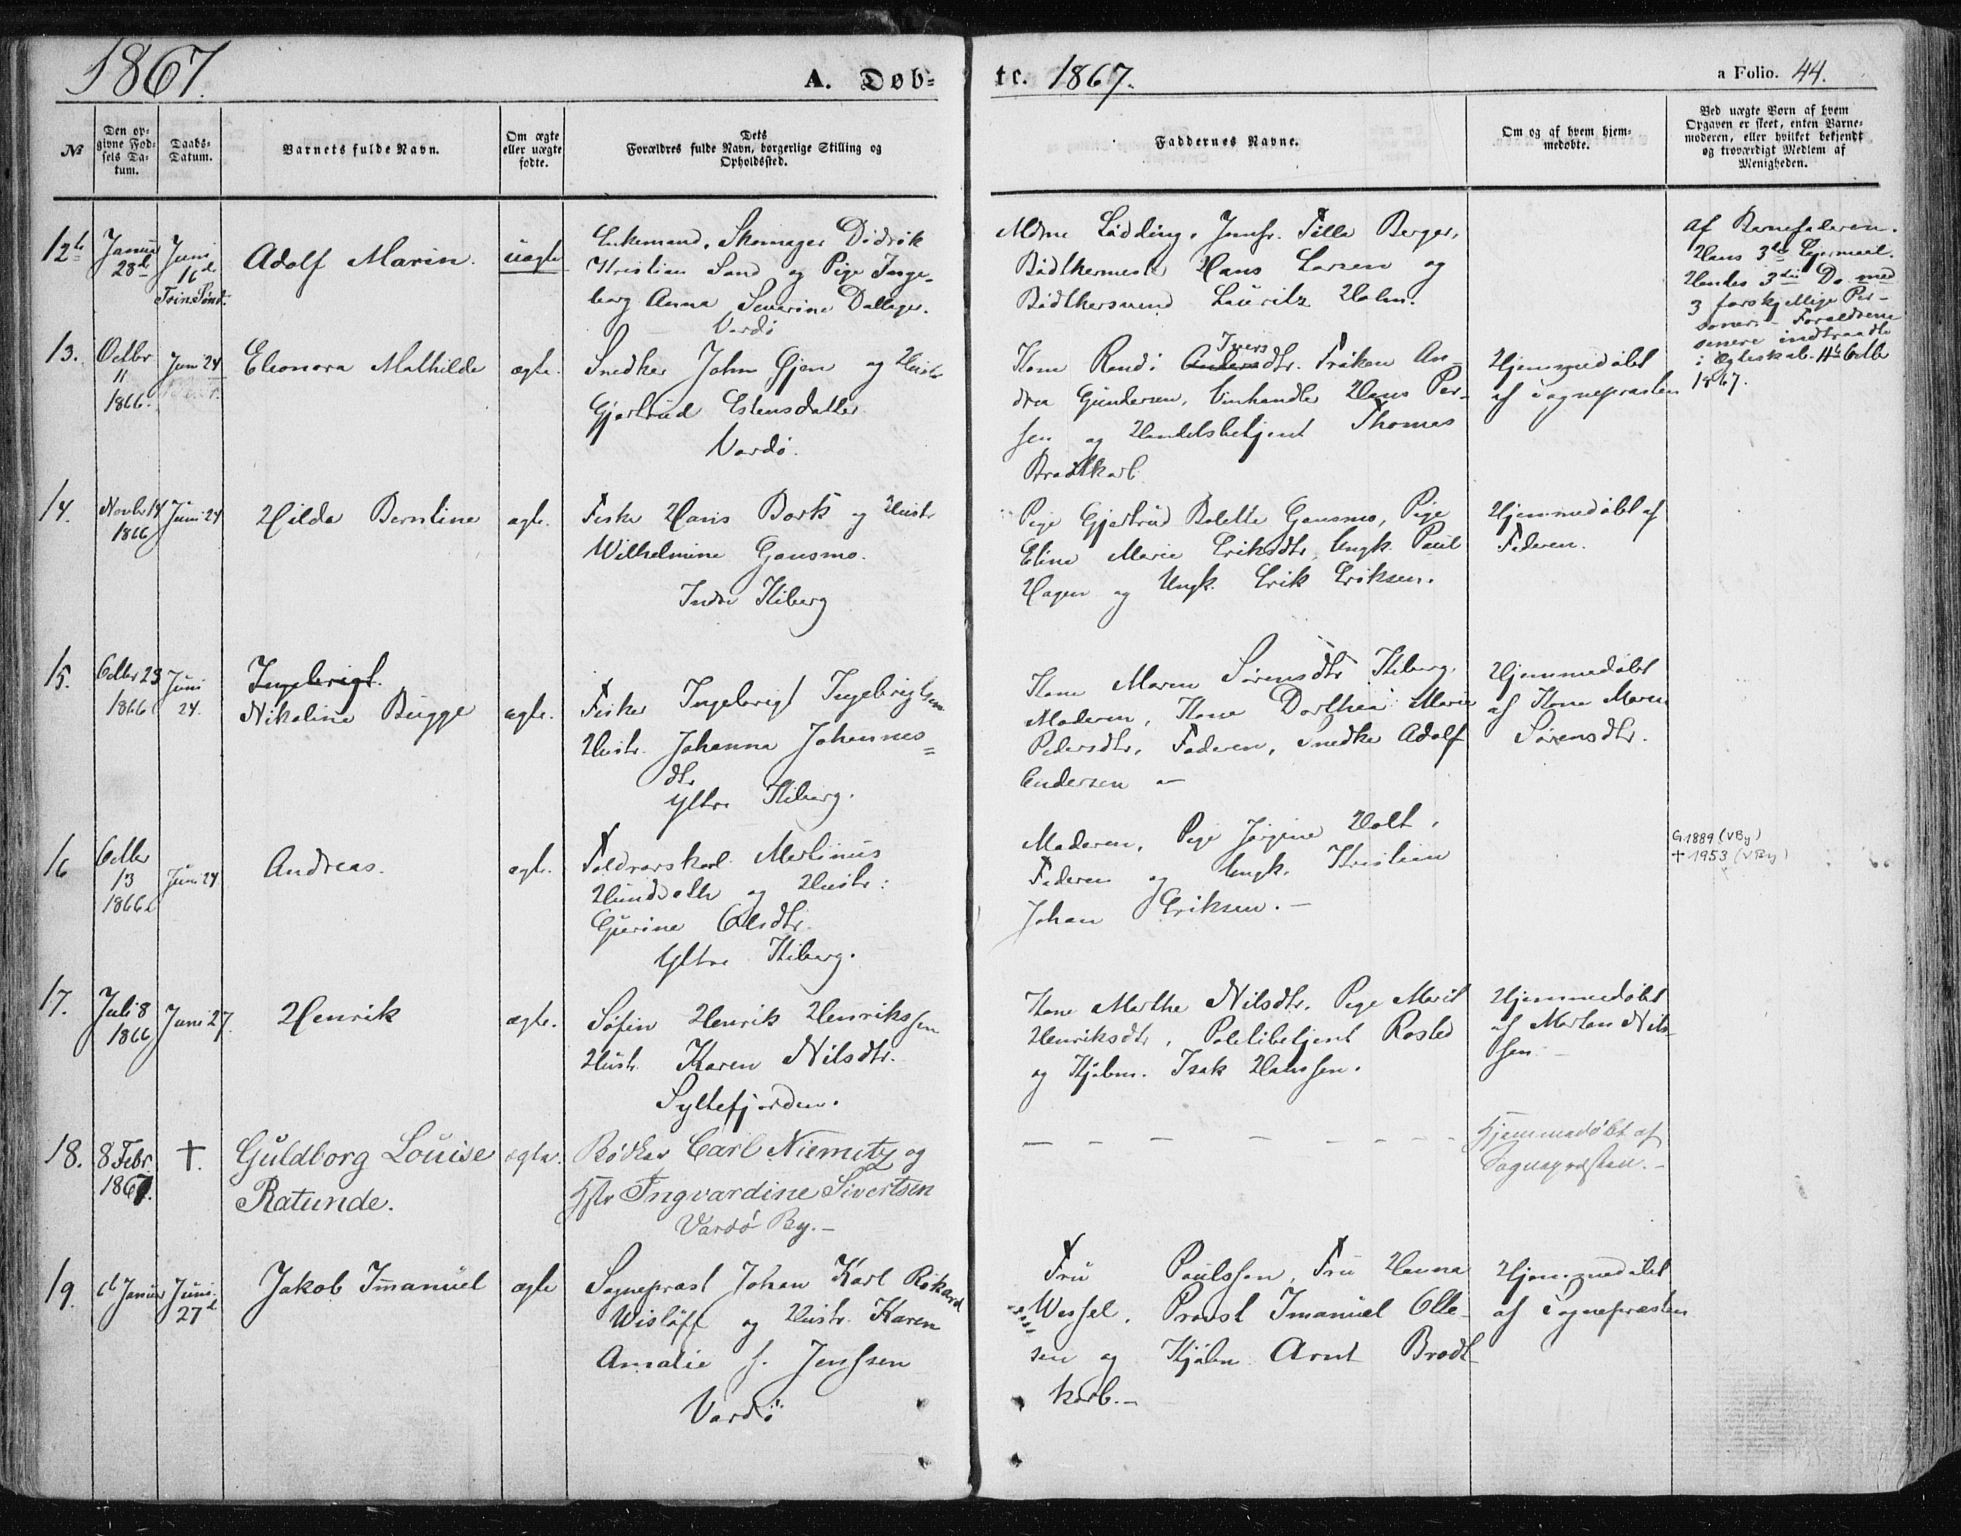 1867.
A. Døb=
te. 1867.
a Folio. 44.
№
Den op-
givne Fød-
sels Da-
tum.
Daabs-
Datum.
Barnets fulde Navn.
Om ægte
eller uægte
fødte.
Dets
Forældres fulde Navn, borgerlige Stilling og
Opholdssted.
Faddernes Navne.
Om og af hvem hjem-
medøbte.
Ved uægte Børn af hvem
Opgaven er skeet, enten Barne-
moderen, eller hvilket bekjendt
og troværdigt Medlem af
Menigheden.
12
Januar
28d
Juni
16d
Trin Sønd.
Adolf Marin.
uægte
Enkemand, Skomager Didrik
Kristian Sand og Pige Inge-
borg Anna Severine Dallager.
Vardø
Mdme Lødding, Jomfr. Berger,
Bødtkermester Hans Larsen og
Bødtkersvend Lauritz Holm.
af Barnefaderen.
Hans 3die Leiermaal.
Hendes 3die Do med
3 forskjellige Per-
soner. - Forældrene
senere indtraadte
i Ægteskab 11te Octbr
1867.
13.
Octbr
11
1866.
Juni 24
Eleonora Mathilde
ægte.
Snedker John Gjen og Hustr
Gjertrud Estensdatter
Vardø.
Kone Randi Andersdtr. Ivers Frøken An-
drea Gundersen, Vinhandler Hans Per-
sen og Handelsbetjent Thomas
Brodtkorb.
Hjemmedøbt
af Sognepræsten
14.
Novbr 14
1866
Juni 24
Hilda Berntine
ægte.
Fisker Hans Bork og Hustr
Wilhelmine Gausmo.
Indre Kiberg
Pige Gjertrud Bolette Gausmo, Pige
Eline Marie Eriksdtr, Ungk. Paul
Hagen og Ungk. Erik Eriksen.
Hjemmedøbt af
Faderen.
15.
Octbr 23
1866
Juni
24.
Ingebrigt.
Nikoline Bugge
ægte.
Fisker Ingebrigt Ingebrigtsen
Hustr. Johanna Johannes=
dtr
Ytre Kiberg.
Kone Maren Sørensdtr Kiberg.
Moderen, Kone Dorthea Marie
Pedersdtr, Faderen, Snedker Adolf
Andersen
Hjemmedøbt
af Kone Maren
Sørensdtr.
16
Octbr
13
1866
Juni 24
Andreas.
ægte.
Merlinus
og Hustr:
Gurine Olsdtr.
Ytre Kiberg.
Moderen, Pige Jørgine Holt,
Faderen og Ungk. Kristian
Johan Eriksen. -
G. 1889 (VBy)
+ 1953 (VBy)
17.
Juli 8
1866
Juni 27.
Henrik
ægte.
Søfin Henrik Henrikssen
Hustr. Karen Nilsdtr.
Syltefjorden.
Kone Marthe Nilsdtr. Pige Marit
Henriksdtr, Politibetjent Rosted
og Kjøbm. Isak Hanssen.
Hjemmedøbt
af Morten Nils-
sen -
18.
8 Febr.
1867.
†.
Guldborg Louise
Ratunde.
ægte.
Bødker Carl Niemitz og
Hstr Ingvardine Sivertsen
Vardø By. -
- - - - - - - -
Hjemmedøbt af
Sognepræsten. -
19.
Januar
Juni
27d
Jakob Imanuel
ægte
Sognepræst Johan Karl Rikard
Wisløff og Hustr. Karen
Amalie f. Jenssen
Vardø
Fru Paulssen, Fru Hanna
Wessel, Provst Imanuel Olle-
sen og Kjøbm Arnt Brodt-
korb. -
Hjemmedøbt
af Sognepræsten